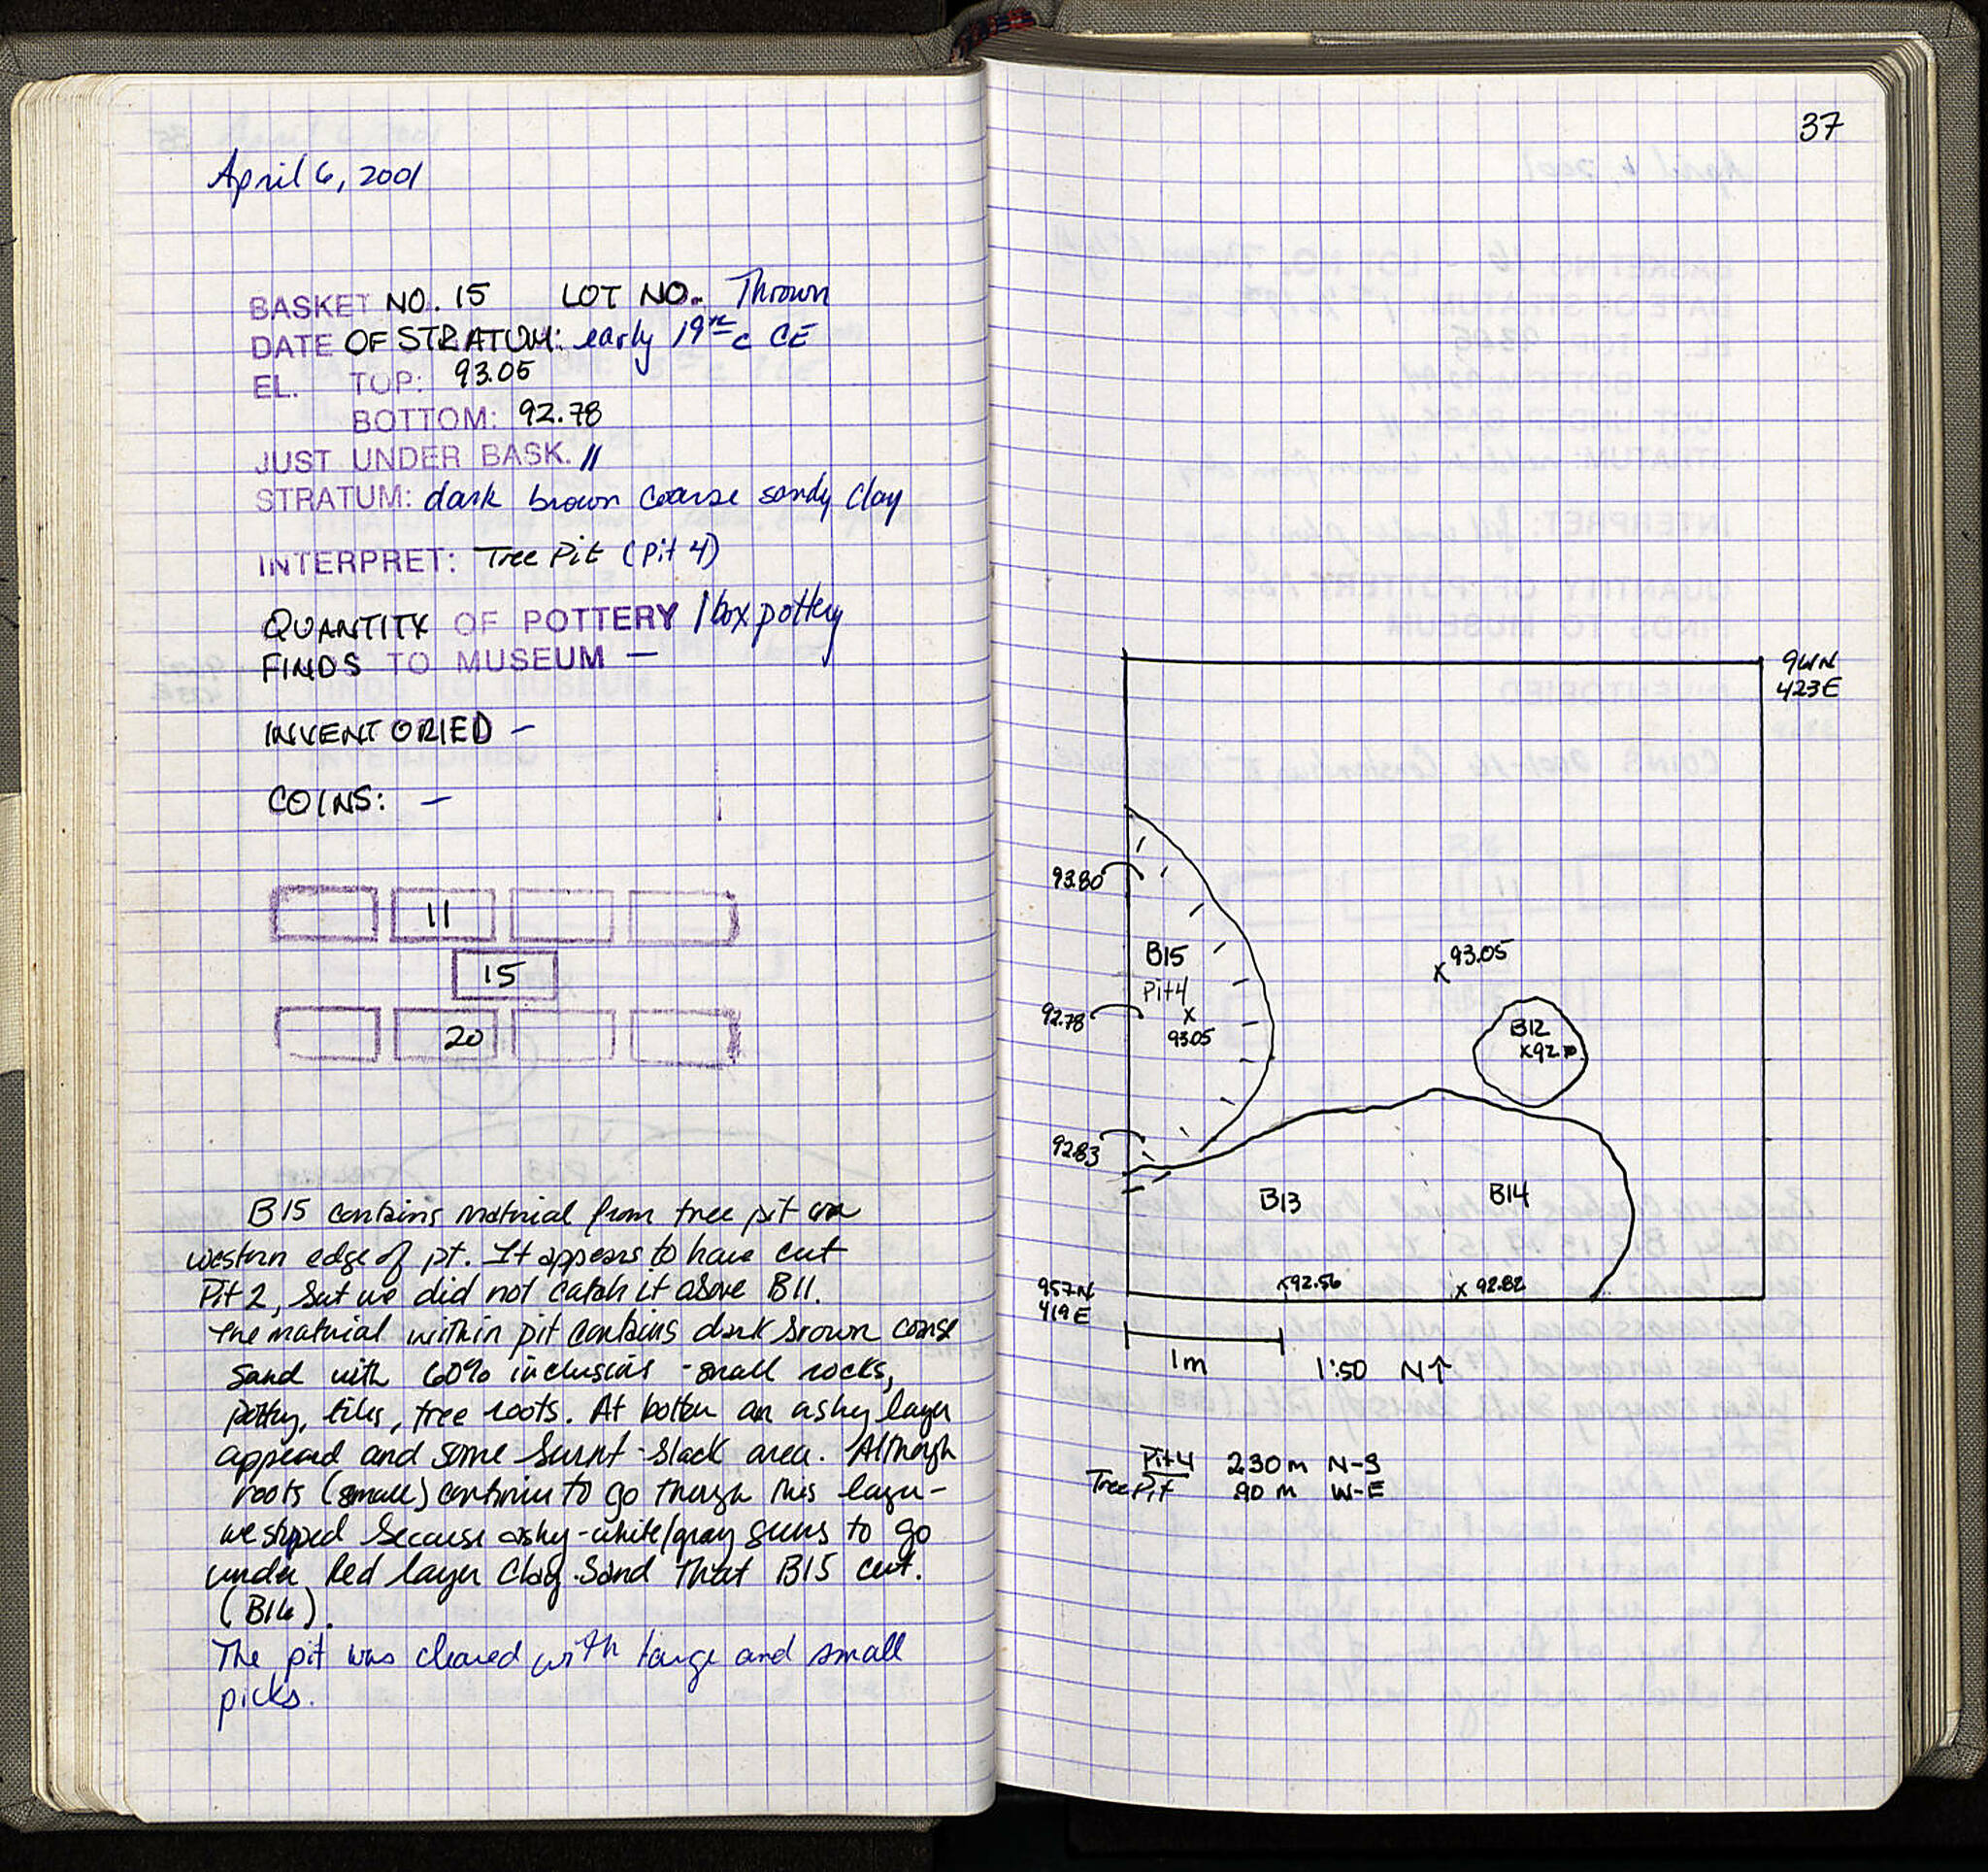 April 6, 2001
BASKET NO. 15 LOT NO. Thrown
DATE OF STRATUM: early 19th c CE
EL. TOP: 93.05
BOTTOM: 92.78
JUST UNDER BASK. 11
STRATUM: dark brown coarse sandy clay
INTERPRET: Tree Pit (Pit 4)
QUANTITY OF POTTERY 1 box pottery
FINDS TO MUSEUM —
INVENTORIED -
COINS: -
11
15
20
B15 contains material from tree pit on
western edge of pt. It appears to have cut
Pit 2, but we did not catch it above B11.
The material within pit contains dark brown coarse
sand with 60% inclusions - small rocks,
pottery, tiles, tree roots. At bottom an ashy layer
appeared and some burnt-black area. Although
roots (small) continue to go through this layer-
we stopped because ashy-white/gray seems to go
under Red layer Clay Sand that B15 cut.
(B16).
The pit was cleared with large and small
picks.
37
961N
423E
93.80
B15
Pit 4
x
93.05
92.78
x 93.05
B12
x92
92.83
B13
B14
957N
419E
x92.56
x 92.82
1m
1:50 N↑
Pit 4 2.30 m N-S
Tree Pit .90 m W-E